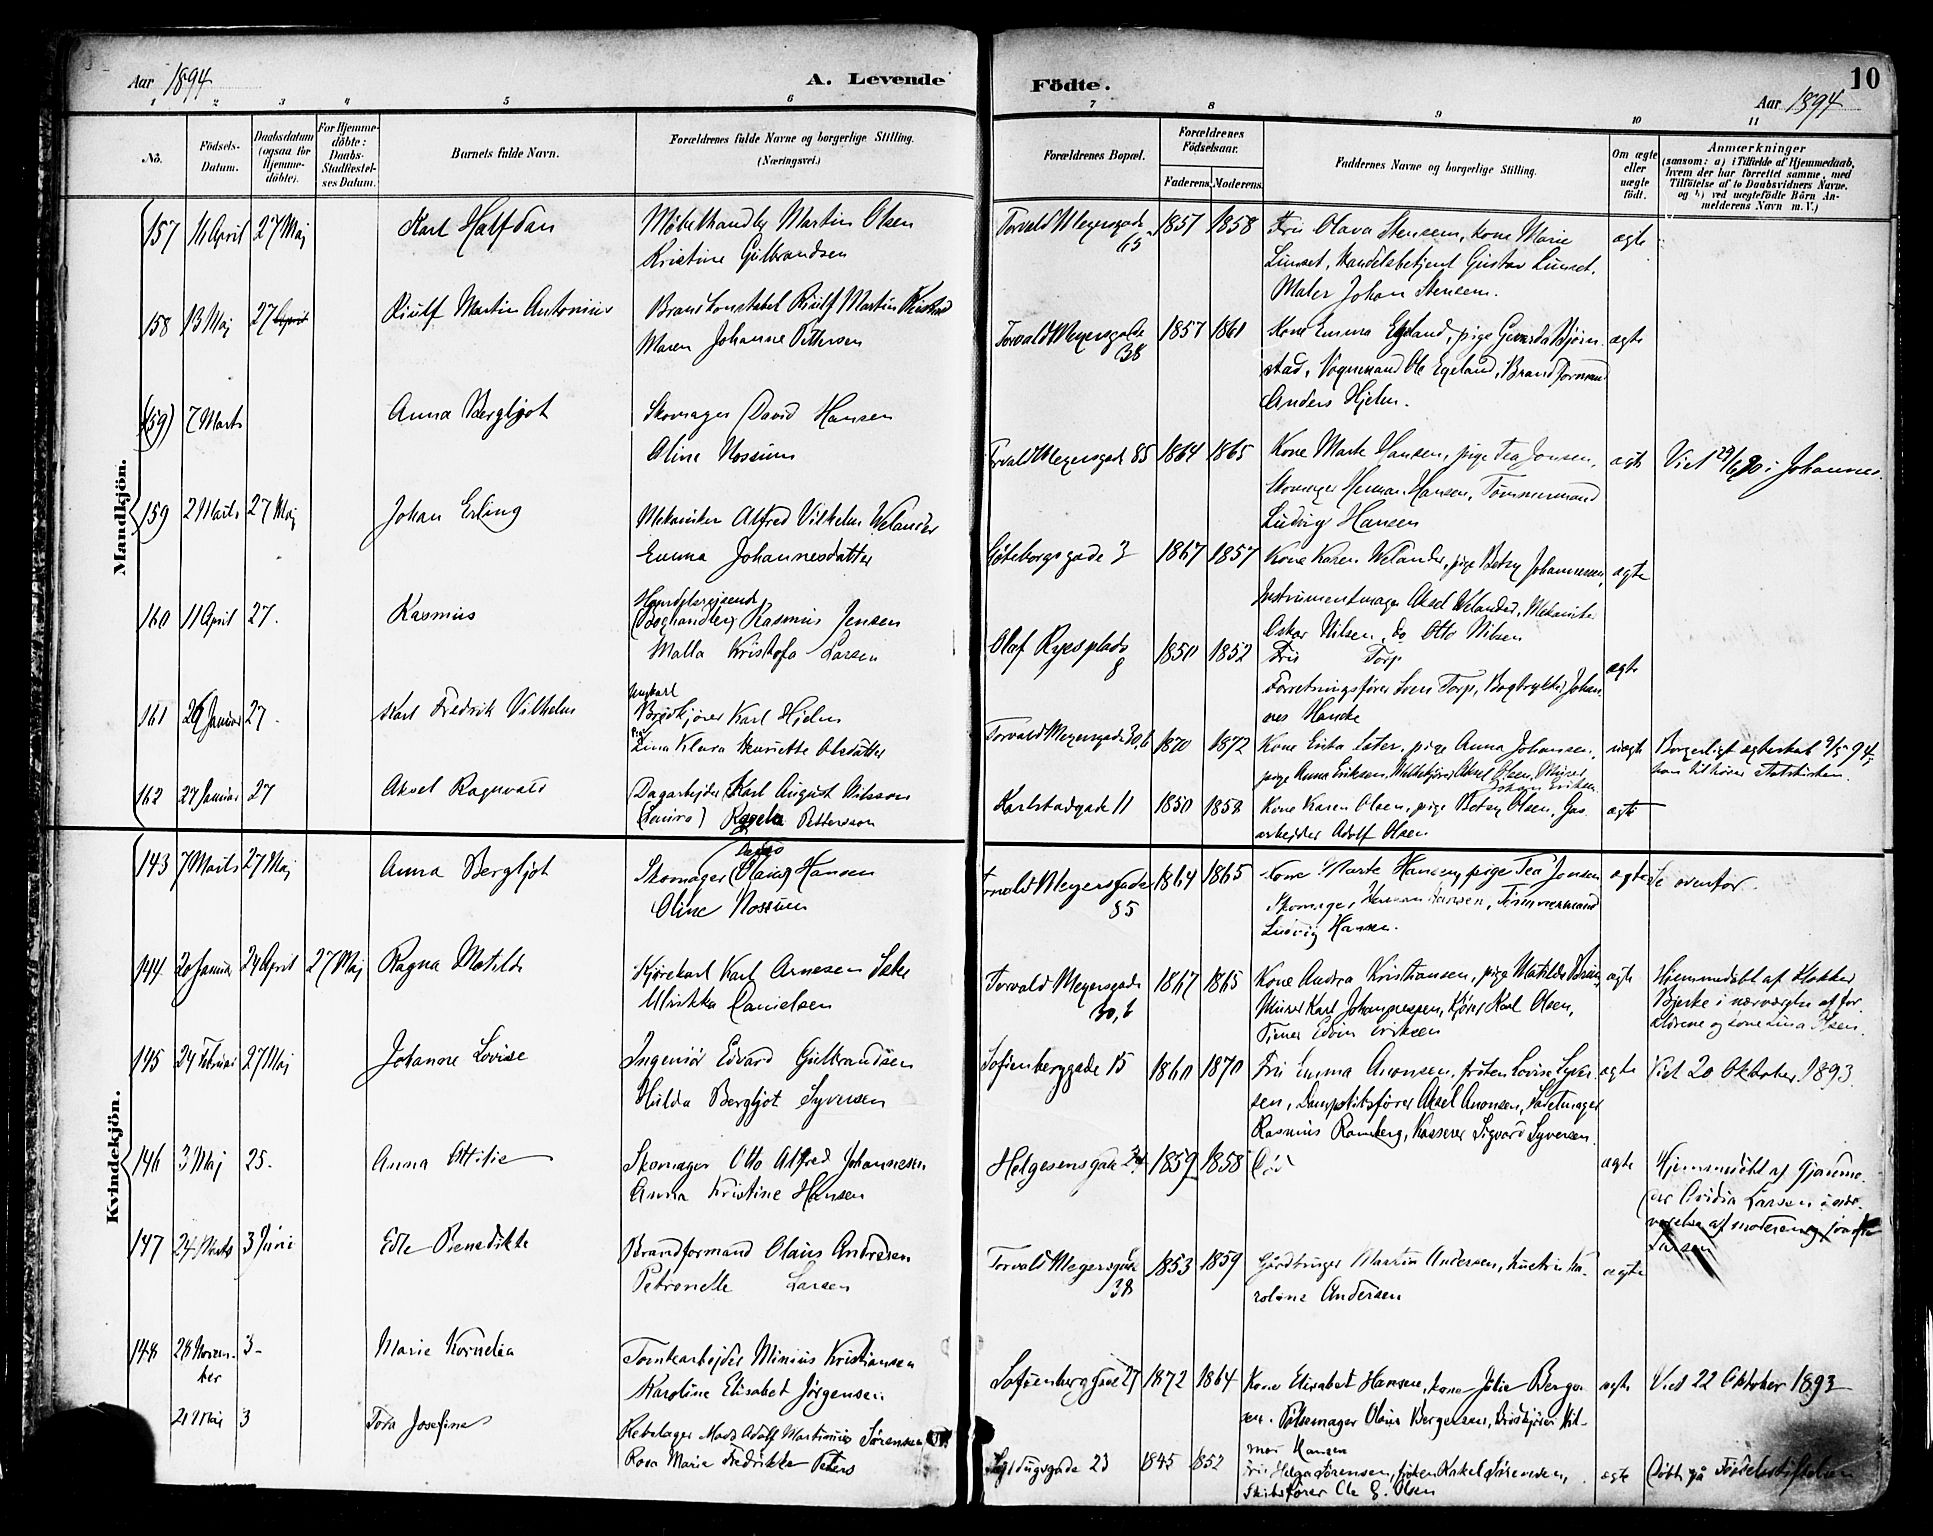 Aar 1894
A. Levende
Födte.
10
Aar 1894
1 2 3 4 5 6 7 8 9 10 11
No.
Födsels-
Datum.
Daabsdatum
(ogsaa for
Hjemme-
döbte).
For Hjemme-
döbte:
Daabs-
Stadfæstel-
ses Datum.
Barnets fulde Navn.
Forældrenes fulde Navne og borgerlige Stilling.
(Næringsvei.)
Forældrenes Bopæl.
Forældrenes
Födselsaar.
Faderens. Moderens.
Faddernes Navne og borgerlige Stilling.
Om ægte
eller
uægte
födt.
Anmærkninger
(saasom: a) i Tilfælde af Hjemmedaab,
hvem der har forrettet samme, med
Tilföielse af to Daabsvidners Navne.
og b) ved uægtefödte Börn An-
melderens Navn m. V.)
Mandkjön.
157 14 April 27 Maj Karl Halfdan Møbelhandler Martin Olsen
Kristine Gulbrandsen
Torvald Meyersgade 1857 1858 Fru Olava Stensen, kone Marie ægte
Linset, Handelsbetjent Gustav Linset,
Maler Johan Stensen.
158 13 Maj 27 April Riulf Martin Antonius Brandkonstabel Riulf Martin
Maren Johanne Pettersen
Torvald Meyersgade 1857 1861 Kone Emma Egeland, pige ægte
38 stad, Vognmand Ole Egeland, Brandformand
Anders Hjelm.
(159) 7 Marts Anna Bergljot Skomager David Hansen
Oline Nossum
Torvald Meyersgade 85 1864 1865 Kone Marte Hansen, pige Tea Jonsen, ægte Viet 29/6 90 i Johannes.
Skomager Herman Hansen, Tømmermand
Ludvig Hansen
159 2 Marts 27 Maj Johan Erling Mekaniker Alfred Vilhelm Welander
Emma Johannesdatter
Göteborgsgade 3 1867 1857 Kone Karen Welander, pige Betsy Johannessen, ægte
Instrumentmager Aksel Welander, Mekaniker
Oskar Nilsen, do Otto Nilsen
160 11 April 27. Rasmus Handelsreisende
(Boghandler) Rasmus Jensen
Malla Kristofa Larsen
Olaf Ryesplads 1850 1852 Fru Torp ægte
8 Forretningsfører Sven Torp, Bogtrykker Johan
nes Hanche
161 26 Januar 27. Karl Fredrik Vilhelm Ungkarl
Brødkjører Karl Hjelm
Pige
Lina Klara Henriette Olsdatter
Torvald Meyersgade 30,b 1870 1872 Kone Erika Sater, pige Anna Johansen, uægte Borgerligt ægteskab 9/5 94,
pige Anna Eriksen, Melkekjører Aksel Olsen, Murer som tilhører Statskirken.
Johan Eriksen
162 27 Januar 27 Aksel Ragnvald Dagarbejder Karl August Nilsson
Pettersson
Karlstadgade 11 1850 1858 Kone Karen Olsen, pige Betsy Olsen, Gas ægte
arbejder Adolf Olsen
Kvindekjön.
143 7 Marts 27 Maj Anna Bergljot David
Skomager (Olaus) Hansen
Oline Nossum
Torvald Meyersgade 1864 1865 Kone Marte Hansen, pige Tea Jonsen ægte Se ovenfor.
85 Skomager Herman Hansen, Tømmermand
Ludvig Hansen.
144 20 Januar 24 April 27 Maj Ragna Matilde Kjørekarl Karl Arnesen Sater
Ulrikka Danielsen
Torvald Meyersgade 1867 1865 Kone Andra Kristiansen, pige Matilde ægte Hjemmedøbt af Klokker
30,b Murer Karl Johannessen, Kjører Karl Olsen, Bjerke i nærværelse af for
Edvin Eriksen ældrene og kone Lina Olsen.
145 24 Februar 27 Maj Johanne Lovise Ingeniör Edvard Gulbrandsen
Hulda Bergljot Syversen
Sofienberggade 15 1860 1870 Fru Emma Aronsen, frøken Lovise Syver ægte Viet 20 Oktober 1893.
sen, Dampskibsfører Aksel Aronsen,
Rasmus Ramberg, Kasserer Sigvard Syversen.
146 3 Maj 25. Anna Ottilie Skomager Otto Alfred Johannesen
Anna Kristine Hansen
Helgesensgade 24 1859 1858 Död ægte Hjemmedöbt af Gjordemo
der Ovidia Larsen i nær
værelse af moderen og jomfru
Larsen
147 24 Marts 3 Juni Edle Benedikte Brandformand Olaus Andresen
Petronelle Larsen
Torvald Meyersgade 1853 1859 Gårdbruger Martin Andersen, hustru Ka- ægte
38 roline Andersen
148 28 Novem- 3- Marie Kornelia Tomtearbejder Minius Kristiansen
ber Karoline Elisabet Jørgensen
Sofienberggade 27 1872 1864 Kone Elisabet Hansen, kone Julie Berge ægte Viet 22 Oktober 1893
sen. Pølsemager Olaus Bergersen, Brødkjører Hil-
mar Hansen
21 Maj 3 Tora Josefine Rebslager Mads Adolf Martinius Sørensen
Rosa Marie Fredrikke Peters
23 1845 1852 Fru Helga Sørensen, frøken Rakel Sørensen, ægte Döbt på Fødselsstiftelsen
Skibsfører Ole G. Olsen